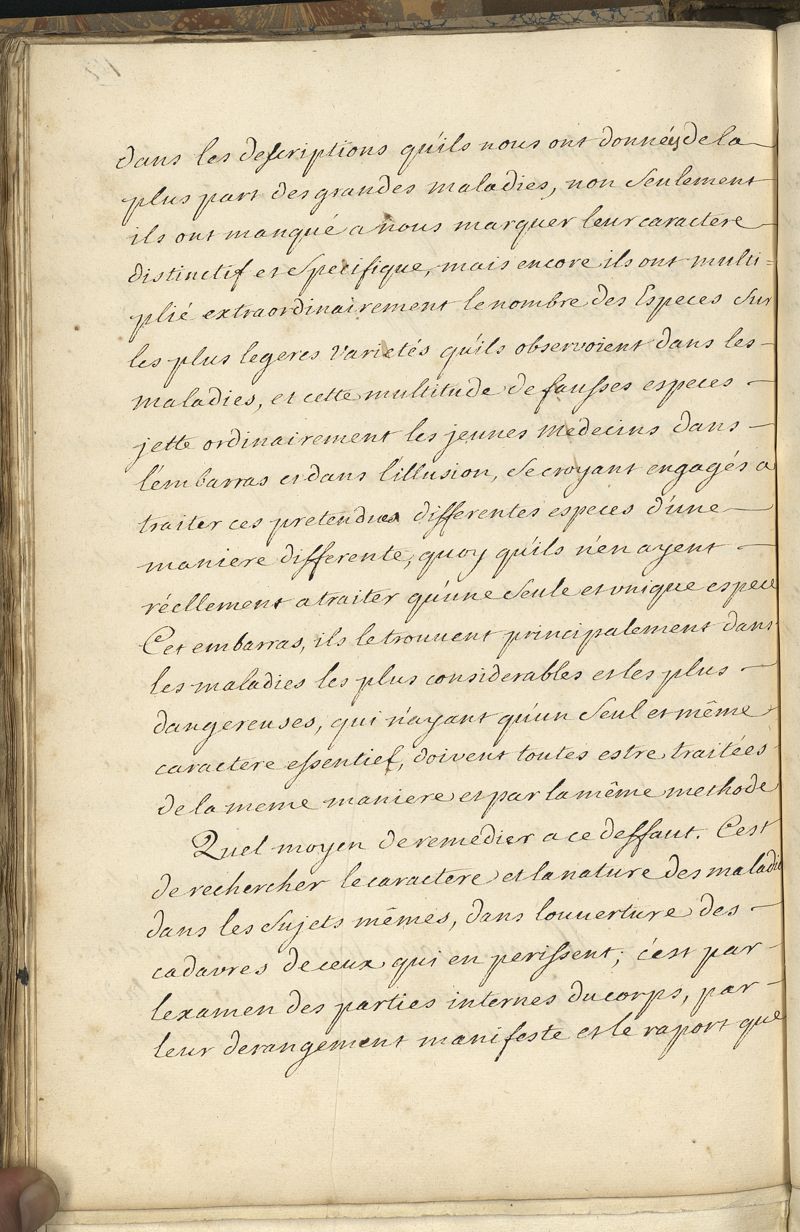 dans les descriptions qu'ils nous ont données de la
plus part des grandes maladies, non seulement
ils ont manqué a nous marquer leur caractere
distinctif et specifique, mais encore ils ont multi=
plié extraordinairement le nombre des Especes sur
les plus legeres varietés qu'ils observoient dans les
maladies, et cette multitude de fausses especes
jette ordinairement les jeunes medecins dans
l'embarras et dans l'illusion, se croyant engagés a
traiter ces pretendues differentes especes d'une
maniere differente, quoy qu'ils n'en ayent
réellement a traiter qu'une seule et unique espece
Cet embarras, ils le trouvent principalement dans
les maladies les plus considerables et les plus
dangereuses, qui n'ayant qu'un seul et même
caractere essentiel, doivent toutes estre traitées
de la meme maniere et par la même methode
Quel moyen de remedier a ce deffaut. C'est
de rechercher le caractere et la nature des maladie
dans les sujets mêmes, dans l'ouverture des
cadavres de ceux qui en perissent; c'est par
lexamen des parties internes du corps, par
leur derangement manifeste et le raport que